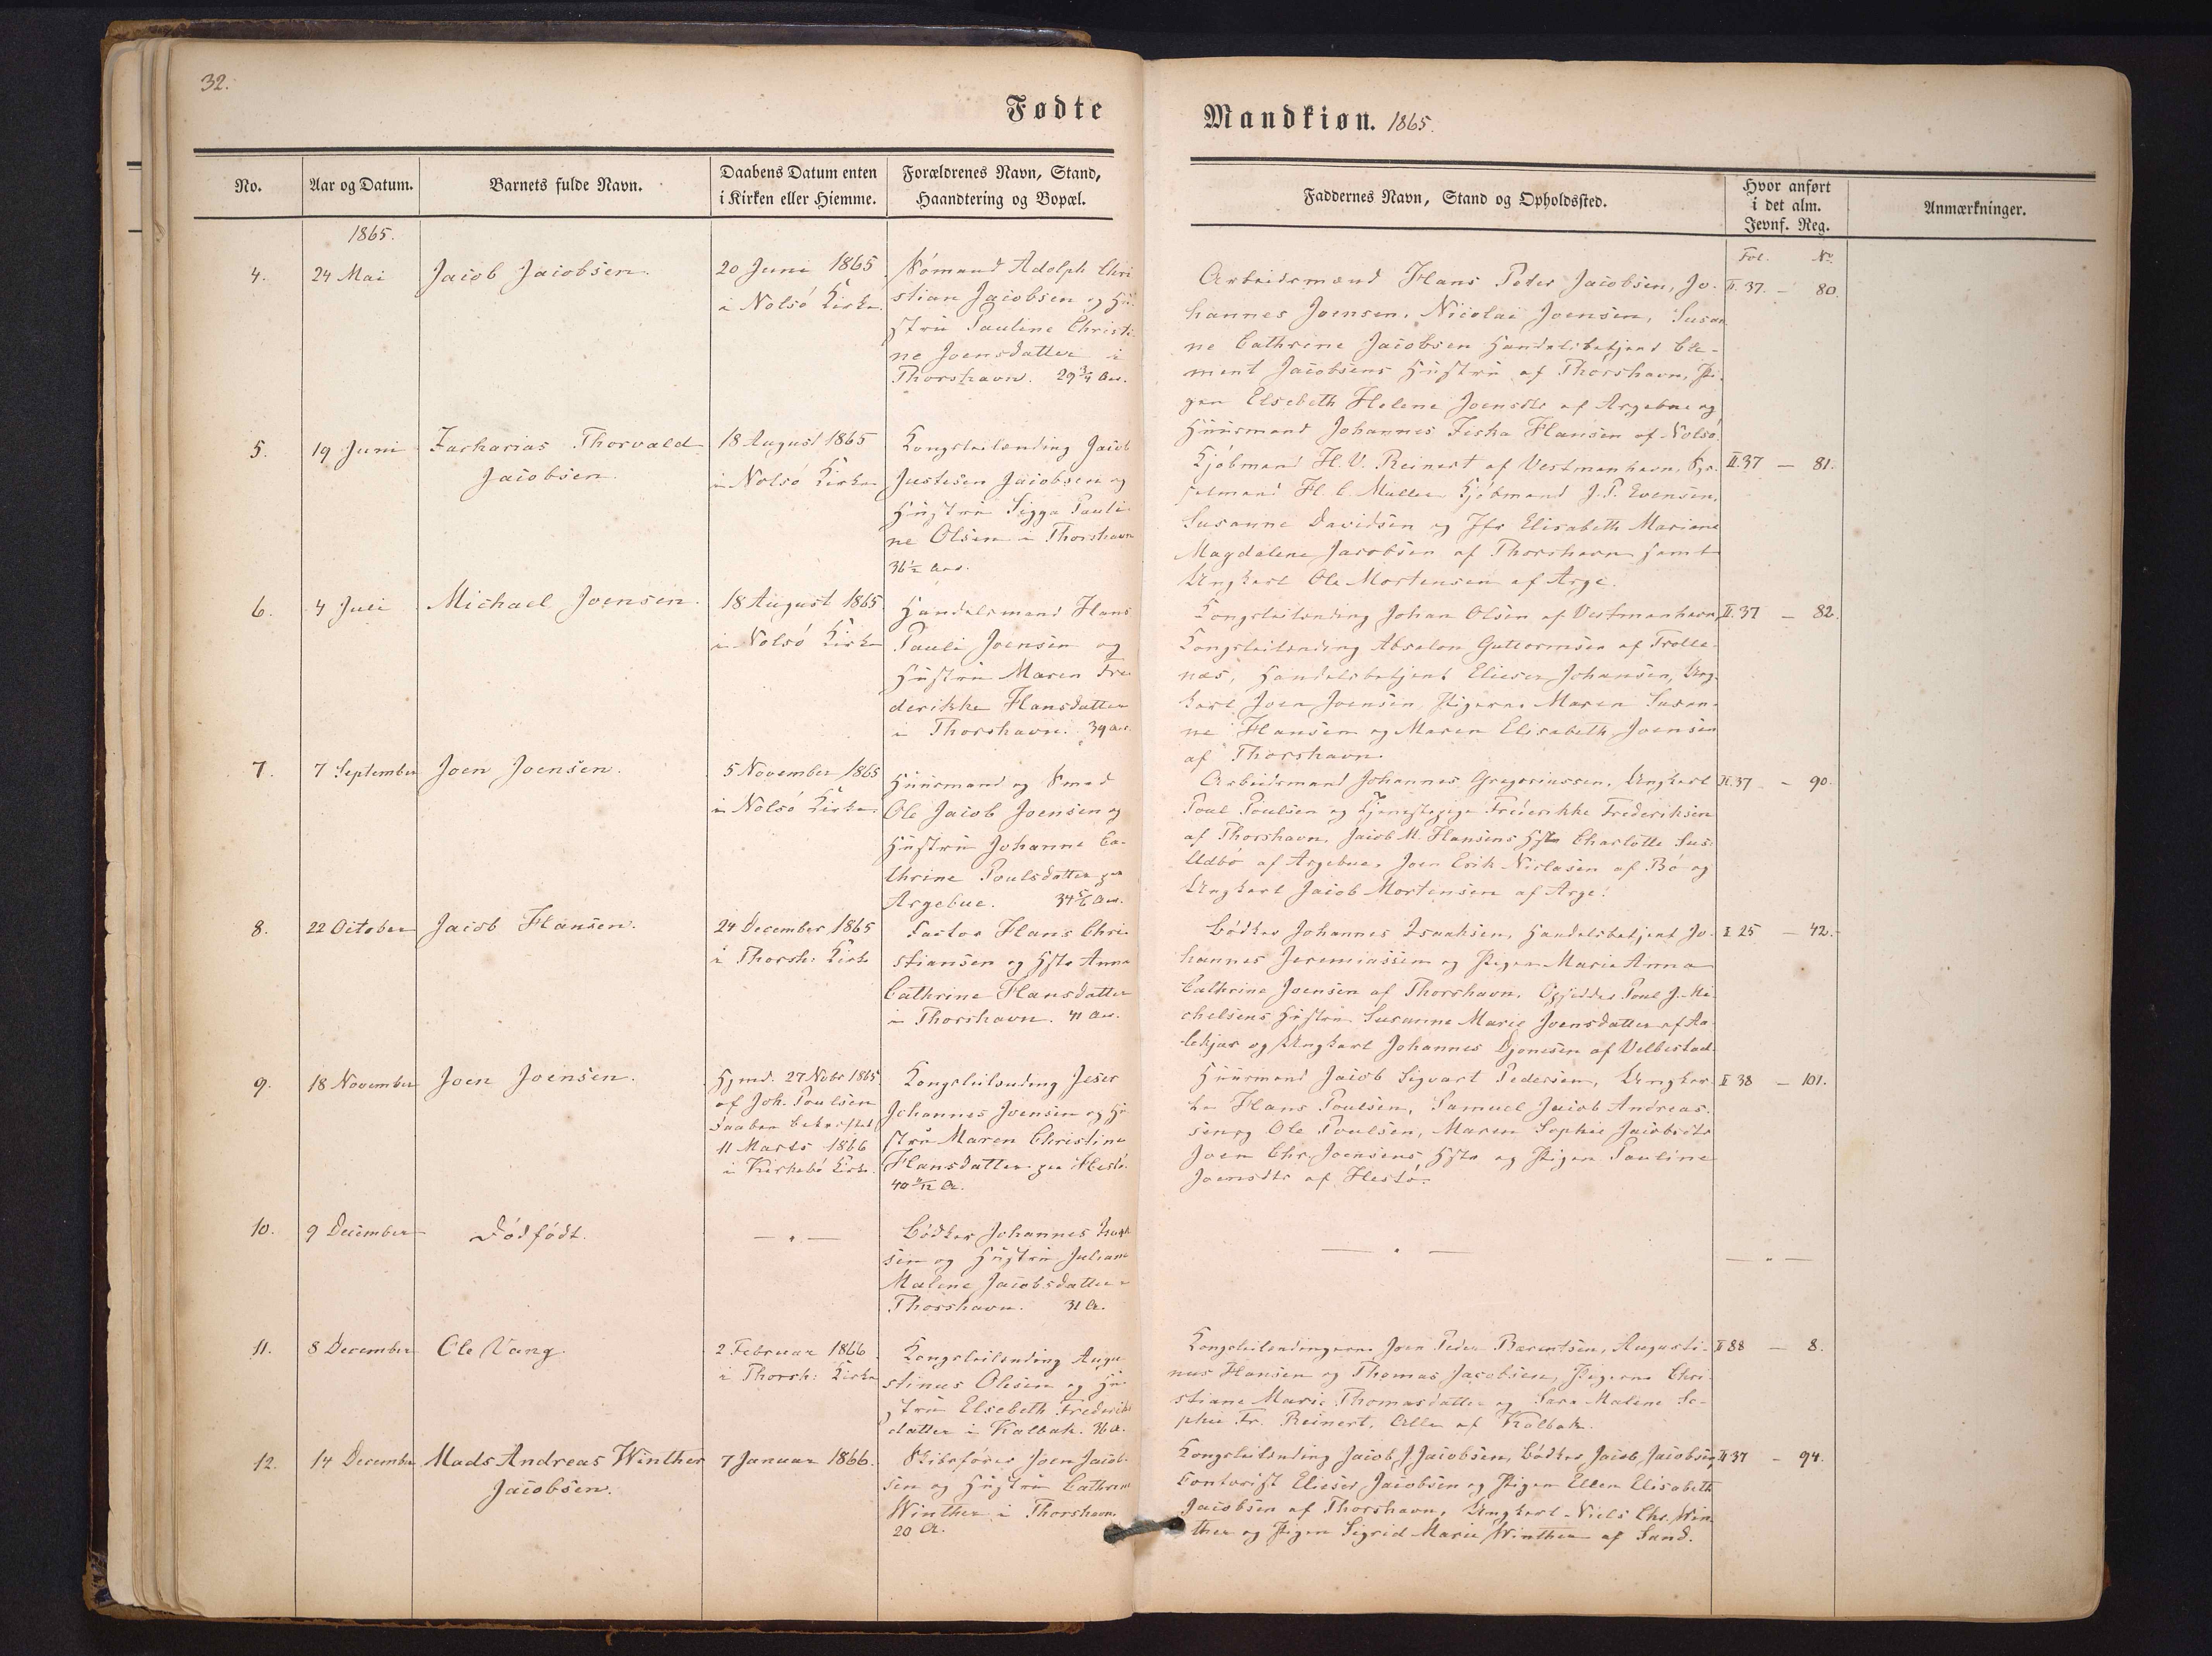 32.
Fødte
Mandkiøn. 1865.
No.
Aar og Datum.
Barnets fulde Navn.
Daabens Datum enten
i Kirken eller Hiemme.
Forældrenes Navn, Stand,
Haandtering og Bopæl.
Faddernes Navn, Stand og Opholdssted.
Hvor anført
i det alm.
Jevnf. Reg.
Anmærkninger.
1865.
Fol. No.
4.
24 Mai
Jacob Jacobsen.
20 Juni 1865
i Nolsö Kirke.
Sömand Adolph Chri
stian Jacobsen og Hu-
stru Pauline Christi-
ne Joensdatter i
Thorshavn. 29 3/4 Aar.
Arbeidsmænd Hans Peter Jacobsen, Jo-
hannes Joensen, Nicolai Joensen, Susan
ne Cathrine Jacobsen Handelsbetjent Cle-
ment Jacobsens Hustru af Thorshavn, Pi-
gen Elsebeth Helene Joensdtr af Argebue og
Huusmand Johannes Hansen af Nolsö.
II. 37. — 80.
5.
19 Juni
Zacharias Thorvald
Jacobsen.
18 August 1865
i Nolsö Kirke
Kongsleilænding Jacob
Justesen Jacobsen og
Hustru Sigga Pauli-
ne Olsen i Thorshavn
36 1/2 Aar.
Kjöbmand H. V. Reinert af Vestmanhavn, Sys-
selmand H. C. Müller Kjöbmand J. P. Evensen,
Susanne Davidsen og Jfr Elisabeth Mariane
Magdalene Jacobsen af Thorshavn samt
Ungkarl Ole Mortensen af Arge.
II. 37 — 81.
6.
4 Juli
Michael Joensen.
18 August 1865
i Nolsö Kirke
Handelsmand Hans
Pauli Joensen og
Hustru Maren Fre-
derikke Hansdatter
i Thorshavn. 39 Aar.
Kongsleilænding Johan Olsen af Vestmanhavn,
Kongsleilænding Absalon Guttormsen af Trolle-
næs, Handelsbetjent Elieser Johansen, Ung-
karl Joen Joensen, Pigerne Maren Susan-
ne Hansen og Maren Elisabeth Joensen
af Thorshavn.
II. 37 — 82.
7.
7 September
Joen Joensen.
5 November 1865
i Nolsö Kirke.
Huusmand og Smed
Ole Jacob Joensen og
Hustru Johanne Ca-
thrine Poulsdatter paa
Argebue. 34 5/6 Aar.
Arbeidsmand Johannes Gregoriussen, Ungkarl
Poul Poulsen og Tjenestepige Frederikke Frederiksen
af Thorshavn, Jacob M. Hansens Hstr Charlotte Sus:
Udbö af Argebue, Joen Erik Niclasen af Bö og
Ungkarl Jacob Mortensen af Arge.
II. 37 — 90.
8.
22 October
Jacob Hansen.
24 December 1865
i Thorsh: Kirke
Factor Hans Chri-
stiansen og Hstr Anna
Cathrine Hansdatter
i Thorshavn. 41 Aar.
Bödker Johannes Isaaksen, Handelsbetjent Jo-
hannes Jeremiassen og Pigen Marie Anna
Cathrine Joensen af Thorshavn, Opsidder Poul J. Mi-
chelsens Hustru Susanne Marie Joensdatter af Aa-
lekjær og Ungkarl Johannes Djonesen af Velbestad.
I 25 — 42.
9.
18 November
Joen Joensen.
Hjmd. 27 Nvbr 1865
af Joh. Poulsen
Daaben bekræftet
11 Marts 1866
i Kirkebö Kirke.
Kongsleilænding Jeser
Johannes Joensen og Hu-
stru Maren Christine
Hansdatter paa Hestö.
40 11/12 A.
Huusmand Jacob Sigvart Pedersen, Ungkar-
le Hans Poulsen, Samuel Jacob Andreas-
sen og Ole Poulsen, Maren Sophie Jacobsdtr
Joen Chr. Joensens Hstr og Pigen Pauline
Joensdtr af Hestö.
II 38 — 101.
10.
9 December
Dödfödt.
— " —
Bödker Johannes Isaak
sen og Hustru Juliane
Malene Jacobsdatter i
Thorshavn. 31 A.
— " —
— " —
11.
8 December
Ole Vang.
2 Februar 1866
i Thorsh: Kirke
Kongsleilænding Augu-
stinus Olesen og Hu-
stru Elsebeth Frederiks
datter i Kalbak. 36 A.
Kongsleilændingerne Joen Peder Barentsen, Augusti-
nus Hansen og Thomas Jacobsen, Pigerne Chri-
stiane Marie Thomasdatter og Sara Malene So-
phie Fr. Reinert, Alle af Kalbak.
II 88 — 8.
12.
14 December
Mads Andreas Winther
Jacobsen.
7 Januar 1866.
Skibsfører Joen Jacob-
sen og Hustru Cathrine
Winther i Thorshavn.
20 A.
Kongsleilænding Jacob J Jacobsen, Bödker Jacob Jacobsen,
Contorist Elieser Jacobsen og Pigen Ellen Elisabeth
Jacobsen af Thorshavn, Ungkarl Niels Chr. Win-
ther og Pigen Sigrid Marie Winther af Sand.
II 37 — 94.